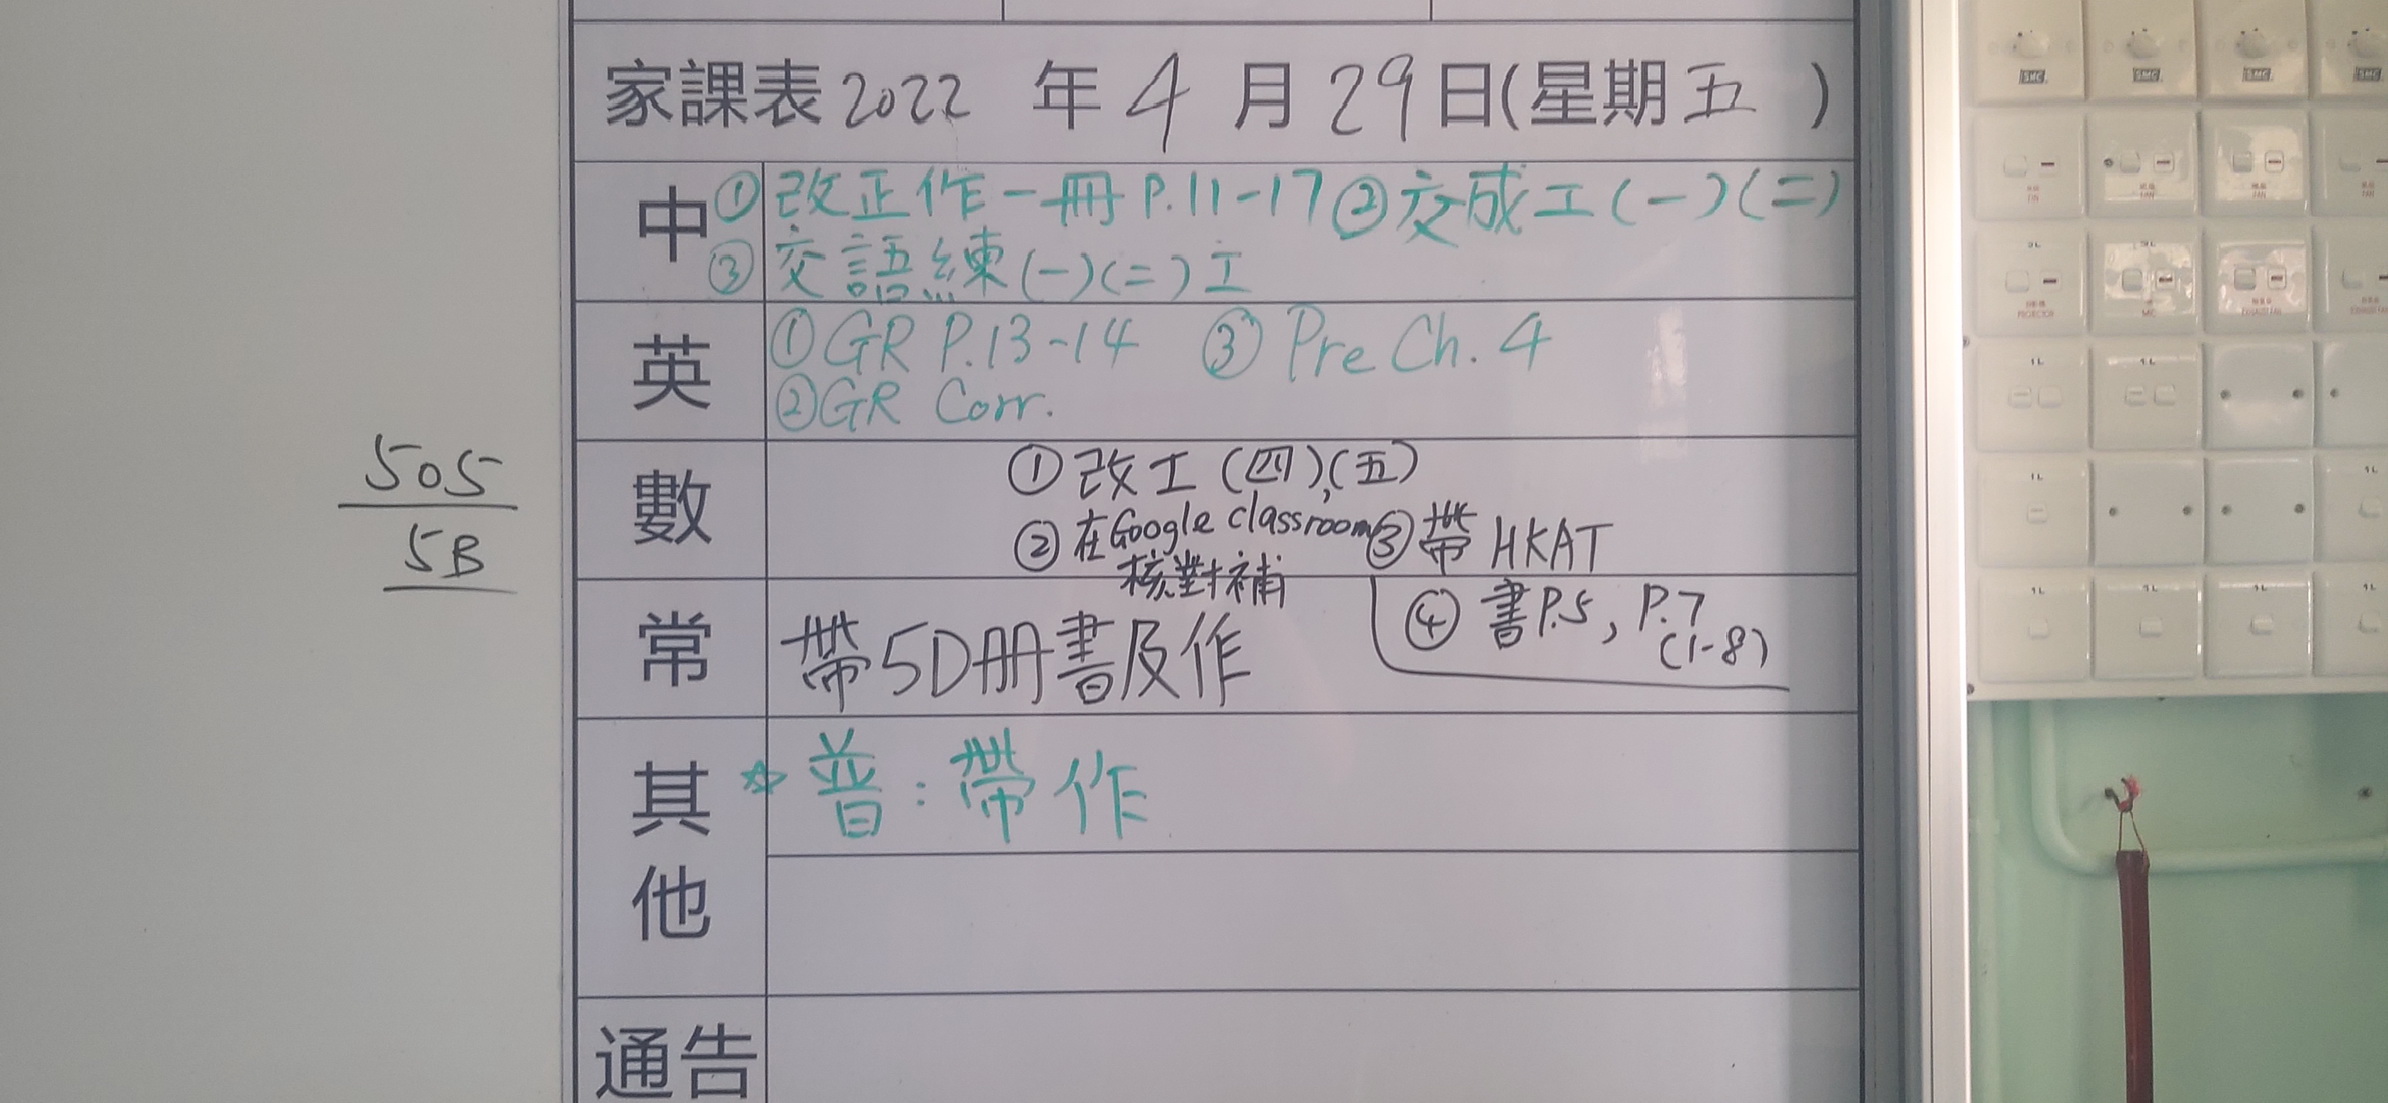 家課表 2022 年 4 月 29 日(星期五)
中 ① 改正作一冊 P.11-17 ② 交成工(一)(二)
③ 交語練(一)(二)工
英 ① GR P.13-14 ③ Pre Ch. 4
② GR Corr.
505
5B
數 ① 改工(四),(五)
② 在Google classroom ③ 帶 HKAT
核對補
④ 書P.5, P.7
(1-8)
常 帶5D冊書及作
其他 ☆ 普:帶作
通告